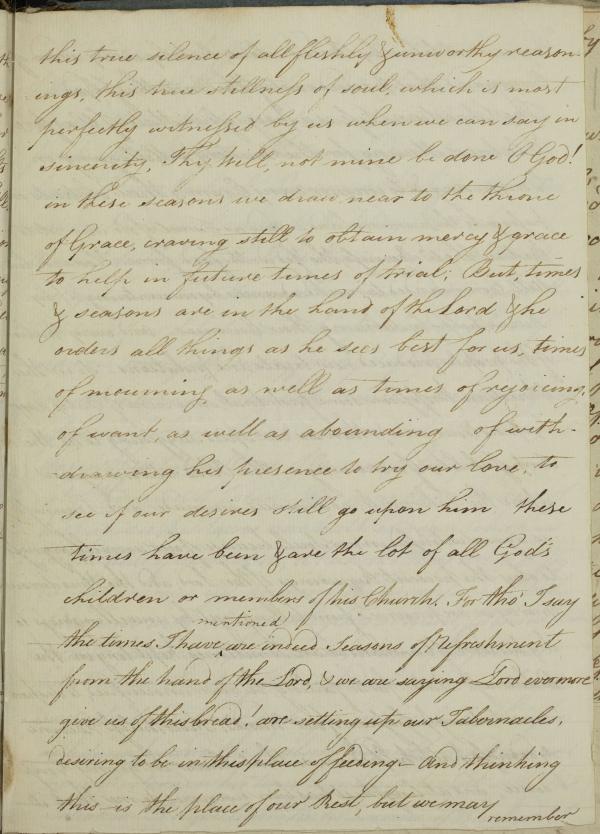 this true silence of all fleshly & unworthy reason-
ings, this true stillness of soul, which is most
perfectly witnessed by us when we can say in
sincerity, Thy Will, not mine be done O God!
in these seasons we draw near to the throne
of Grace, craving still to obtain mercy & grace
to help in future times of trial; But, times
& seasons are in the hand of the Lord & he
orders all things as he sees best for us, times
of mourning as well as times of rejoicing,
of want, as well as abounding of with-
drawing his presence to try our love, to
see if our desires still go upon him these
times have been & are the lot of all God's
children or members of his Church. For tho' I say
mentioned
the times I have ^ are indeed Seasons of Refreshment
from the hand of the Lord, & we are saying Lord evermore
give us of this bread! are setting up our Tabernacles,
desiring to be in this place of feeding – And thinking
this – is the place of our Rest, but we may
remember